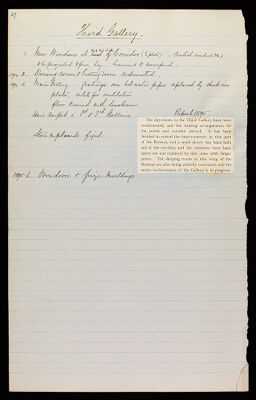 29
Third Gallery.
1. New Windows at end of Corridor
1894 2. Dining room & Sitting room redecorated.
1894 3. Main Gallery. Gratings over hot water pipes replaced by sheet iron
plates, inlets for ventilation
floor covered with linoleum
Hair carpet in 1st & 3rd Galleries
Store cupboards fixed.
Report 1895.
The day-rooms in the Third Gallery have been
re-decorated, and the heating arrangements for
the rooms and corridor altered. It has been
decided to extend the improvements in this part
of the Retreat, and a small alcove has been built
out of the corridor, and the windows have been
taken out and replaced by new ones with larger
panes. The sleeping rooms in this wing of the
Retreat are also being entirely renovated, and the
entire re-decoration of the Gallery is in progress.
1895 6. Overdoors & frieze mouldings